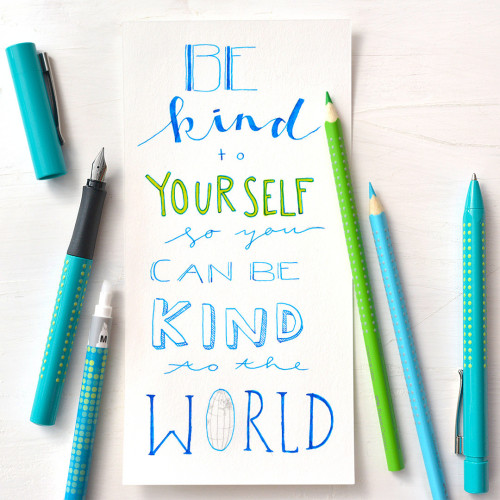 BE
kind
to
YOURSELF
so you
CAN BE
KIND
to the
WORLD
M